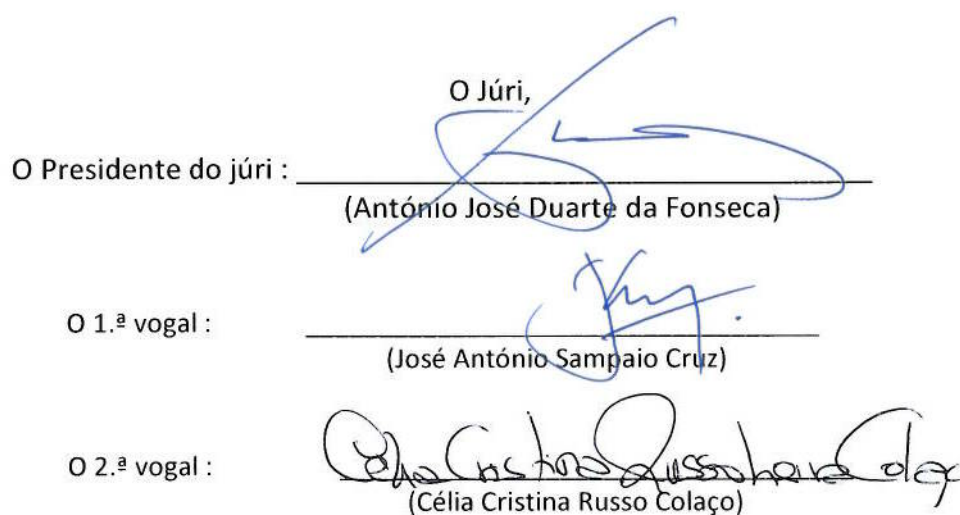 O Júri,
O Presidente do júri :
(António José Duarte da Fonseca)
O 1.ª vogal :
(José António Sampaio Cruz)
O 2.ª vogal :
Célia Cristina Russo Colaço
(Célia Cristina Russo Colaço)